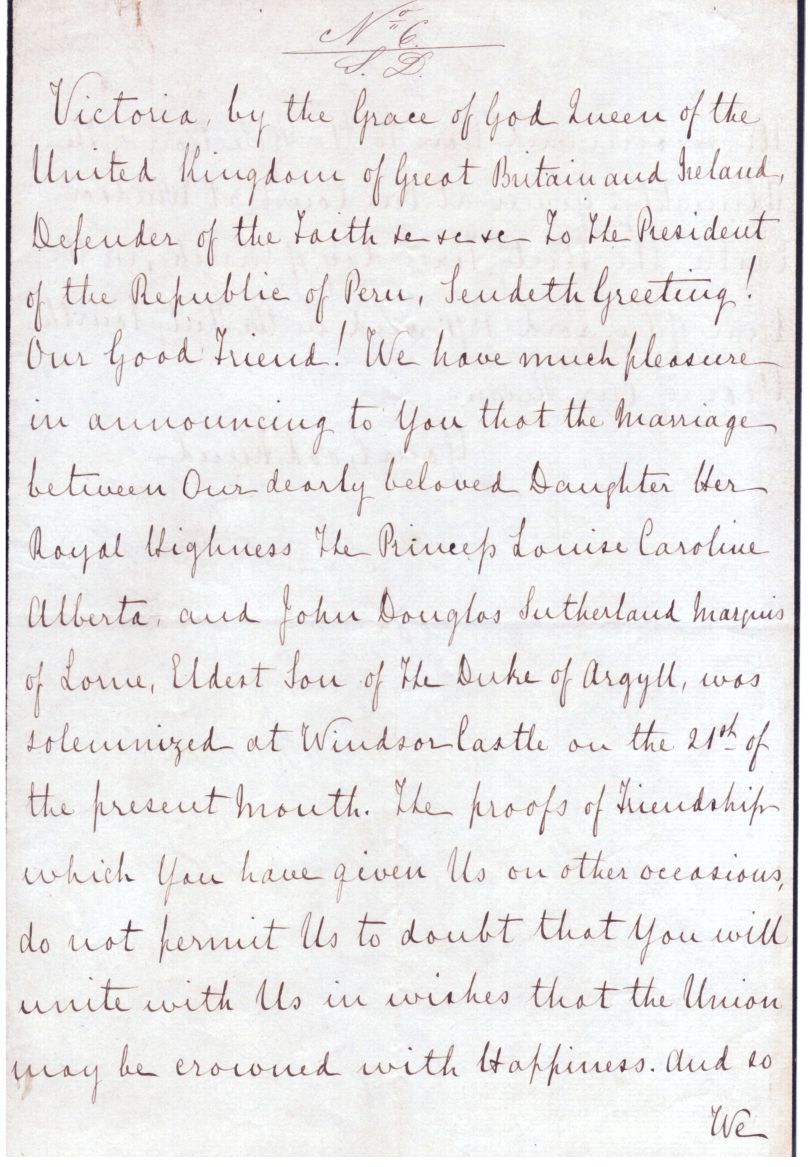 No 6.
S. D.
Victoria, by the Grace of God Queen of the
United Kingdom of Great Britain and Ireland,
Defender of the Faith &c &c &c To The President
of the Republic of Peru, Sendeth Greeting!
Our Good Friend! We have much pleasure
in announcing to You that the Marriage
between Our dearly beloved Daughter Her
Royal Highness The Princess Louise Caroline
Alberta, and John Douglas Sutherland Marquis
of Lorne, Eldest Son of The Duke of Argyll, was
solemnized at Windsor Castle on the 21st of
the present Month. The proofs of Friendship
which You have given Us on other occasions,
do not permit Us to doubt that You will
unite with Us in wishes that the Union
may be crowned with Happiness. And so
We